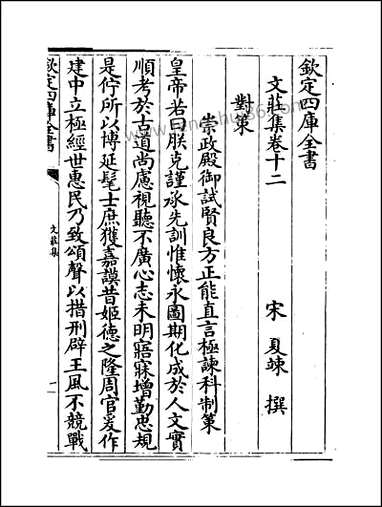 欽定四庫全書
文莊集卷十二
宋 夏竦 撰
對策
崇政殿御試賢良方正能直言極諫科制策
皇帝若曰朕克謹承先訓惟懷永圖期化成於人文實
順考於古道尚慮視聽不廣心志未明寤寐增勤忠規
是佇所以博延髦士庶獲嘉謨昔姬德之隆周官爰作
建中立極經世惠民乃致頌聲以措刑辟王風不競戰
欽定四庫全書
文莊集
一